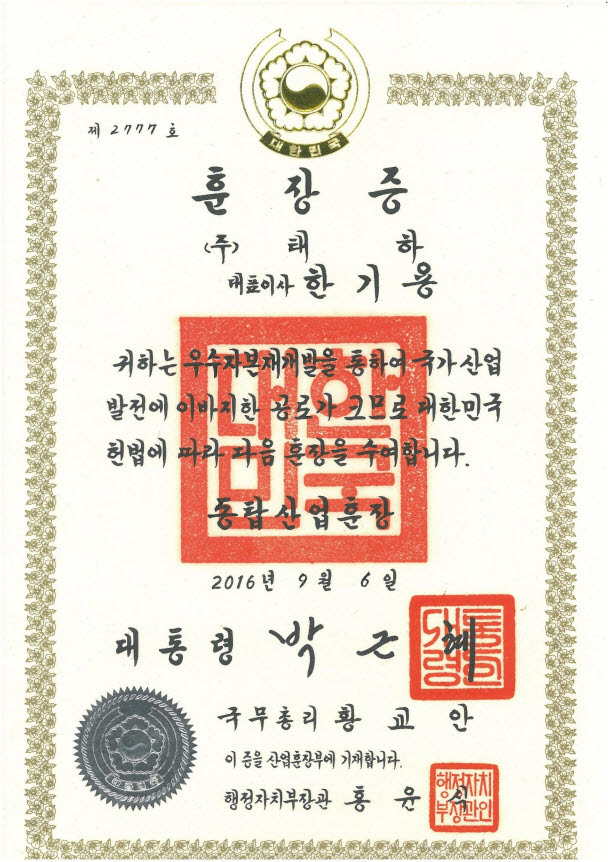 대한민국
제 2777 호
훈장증
(주) 태하
대표이사 한기용
귀하는 우수자본재개발을 통하여 국가산업
발전에 이바지한 공로가 크므로 대한민국
헌법에 따라 다음 훈장을 수여합니다.
대한
민국
동탑산업훈장
2016년 9월 6일
대통령 박근혜
대통
령인
국무총리 황교안
이 증을 산업훈장부에 기재합니다.
행정자치부장관 홍윤식
행정자치
부장관인
대한민국